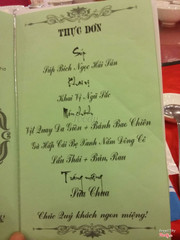 THỰC ĐƠN
Súp
Súp Bích Ngọc Hải Sản
Khai vị
Khai Vị Ngũ Sắc
Món chính
Vịt Quay Da Giòn + Bánh Bao Chiên
Gà Hấp Cải Bẹ Xanh Nấm Đông Cô
Lẩu Thái + Bún, Rau
Tráng miệng
Sữa Chua
Chúc Quý khách ngon miệng!